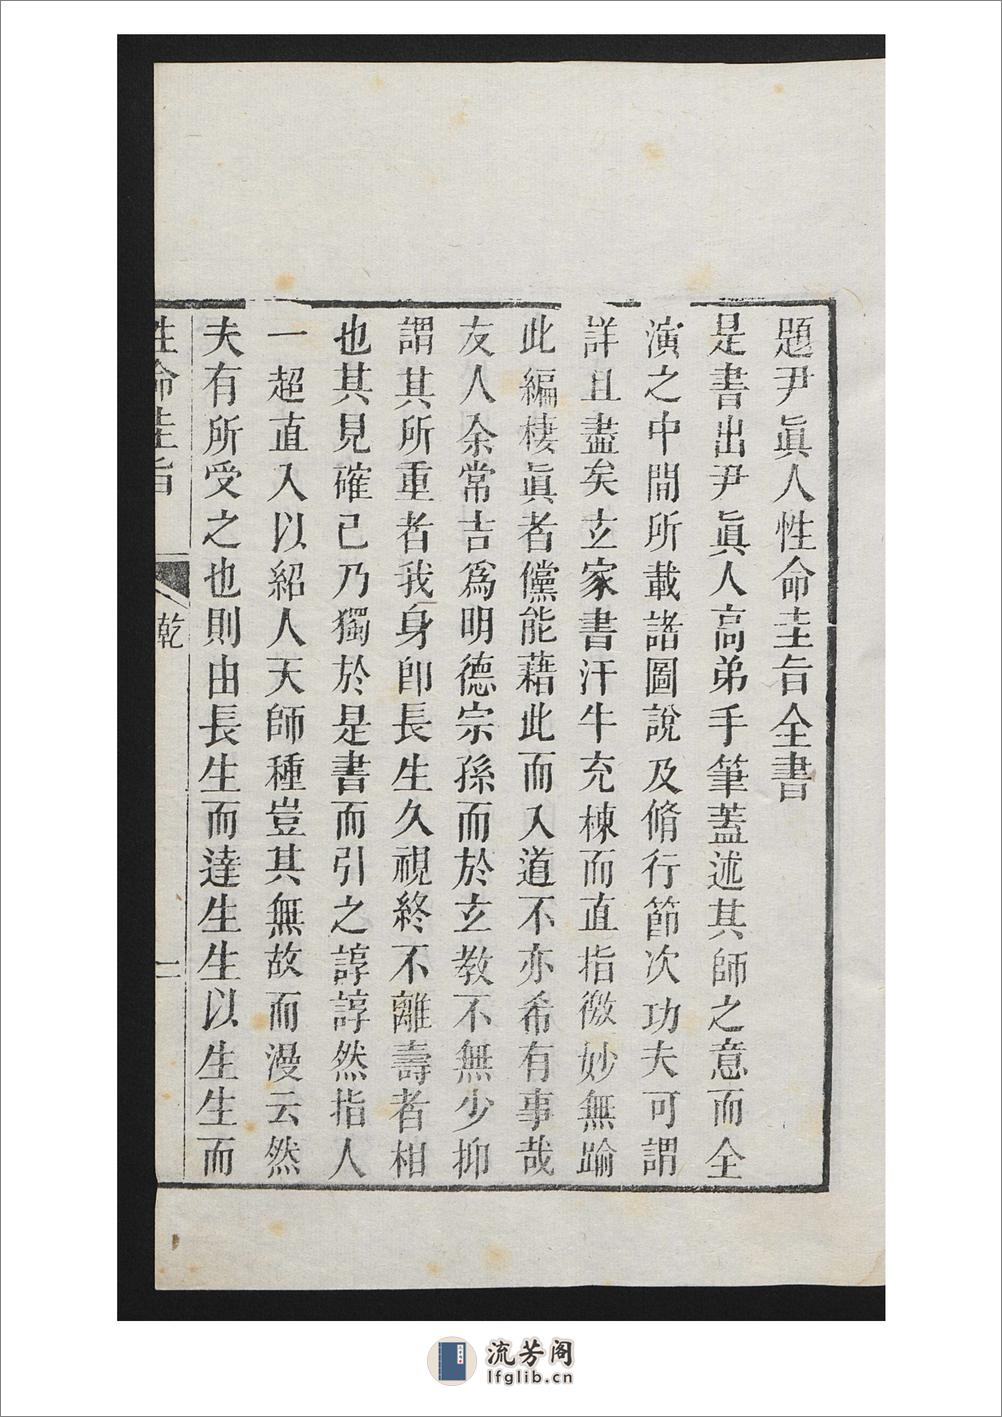 題尹眞人性命圭旨全書
是書出尹眞人高弟手筆蓋述其師之意而全
演之中間所載諸圖說及脩行節次功夫可謂
詳且盡矣玄家書汗牛充棟而直指微妙無踰
此編棲眞者儻能藉此而入道不亦希有事哉
友人余常吉爲明德宗孫而於玄教不無少抑
謂其所重者我身卽長生久視終不離壽者相
也其見確已乃獨於是書而引之諄諄然指人
一超直入以紹人天師種豈其無故而漫云然
夫有所受之也則由長生而達生生以生生而
性命圭旨 乾 一
流芳阁
lfglib.cn